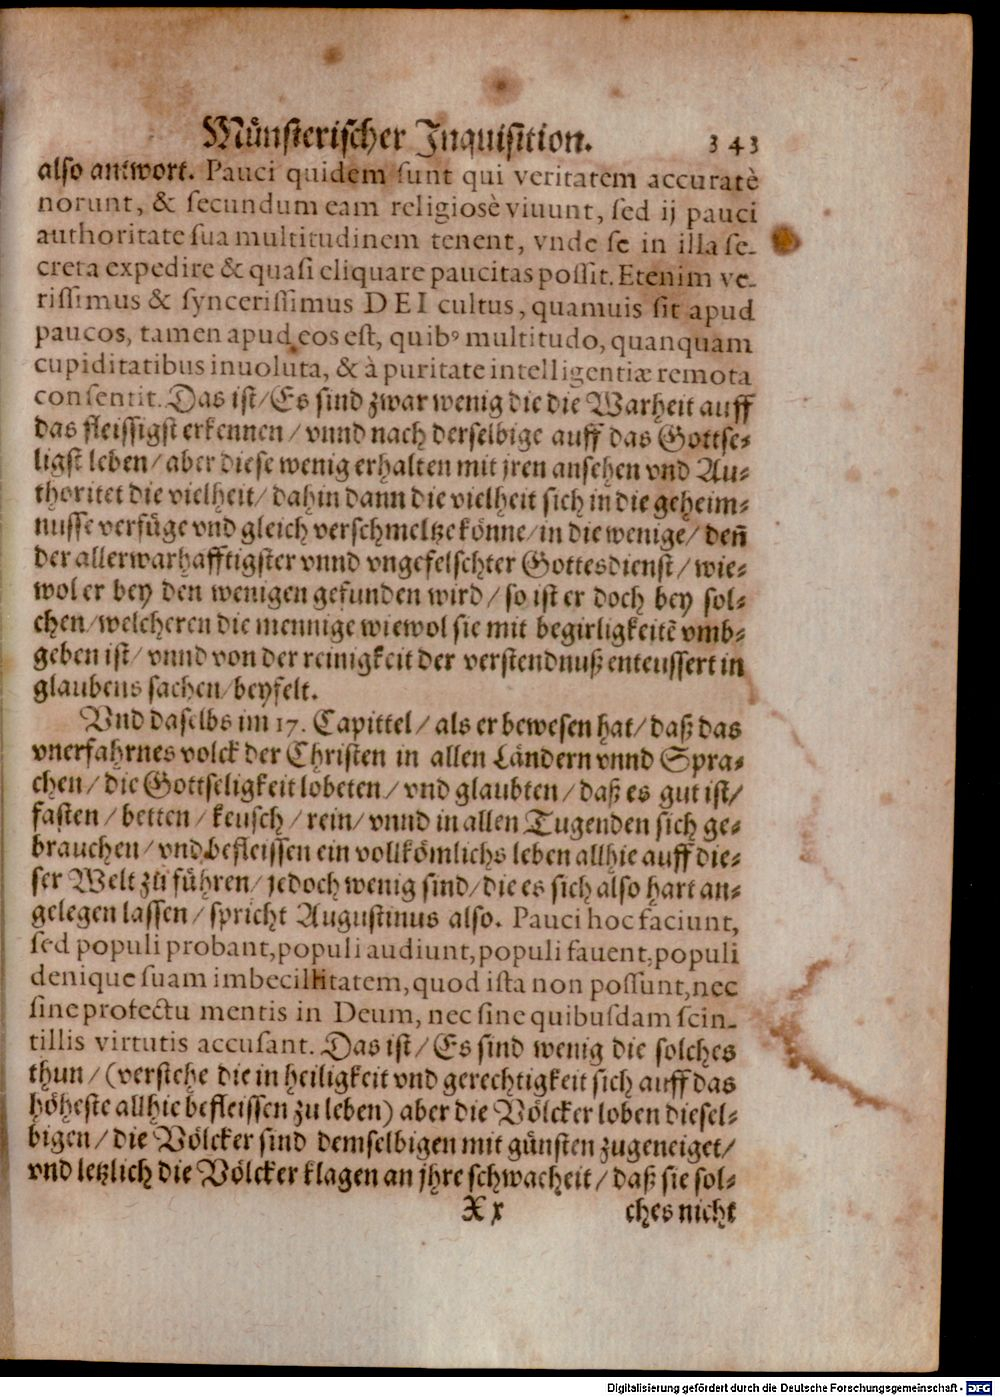 Münsterischer Inquisition. 343
also antwort. Pauci quidem sunt qui veritatem accuratè
norunt, & secundum eam religiosè viuunt, sed ij pauci
authoritate sua multitudinem tenent, vnde se in illa se-
creta expedire & quasi eliquare paucitas possit. Etenim ve-
rissimus & syncerissimus DEI cultus, quamuis sit apud
paucos, tamen apud eos est, quibꝰ multitudo, quanquam
cupiditatibus inuoluta, & à puritate intelligentiæ remota
consentit. Das ist/ Es sind zwar wenig die die Warheit auff
das fleissigst erkennen/ vnnd nach derselbige auff das Gottse-
ligst leben/ aber diese wenig erhalten mit jren ansehen vnd Au-
thoritet die vielheit/ dahin dann die vielheit sich in die geheim-
nusse verfüge vnd gleich verschmeltze könne/ in die wenige/ deñ
der allerwarhafftigster vnnd vngefelschter Gottesdienst/ wie-
wol er bey den wenigen gefunden wird/ so ist er doch bey sol-
chen/ welcheren die mennige wiewol sie mit begirligkeitẽ vmb-
geben ist/ vnnd von der reinigkeit der verstendnuß enteussert in
glaubens sachen/ beyfelt.
Vnd daselbs im 17. Capittel/ als er bewesen hat/ daß das
vnerfahrnes volck der Christen in allen Ländern vnnd Spra-
chen/ die Gottseligkeit lobeten/ vnd glaubten/ daß es gut ist/
fasten/ betten/ keusch/ rein/ vnnd in allen Tugenden sich ge-
brauchen/ vnd befleissen ein vollkömlichs leben allhie auff die-
ser Welt zu führen/ jedoch wenig sind/ die es sich also hart an-
gelegen lassen/ spricht Augustinus also. Pauci hoc faciunt,
sed populi probant, populi audiunt, populi fauent, populi
denique suam imbecillitatem, quod ista non possunt, nec
sine profectu mentis in Deum, nec sine quibusdam scin-
tillis virtutis accusant. Das ist/ Es sind wenig die solches
thun/ (verstehe die in heiligkeit vnd gerechtigkeit sich auff das
höheste allhie befleissen zu leben) aber die Völcker loben diesel-
bigen/ die Völcker sind demselbigen mit günsten zugeneiget/
vnd letzlich die Völcker klagen an jhre schwacheit/ daß sie sol-
Xx ches nicht
Digitalisierung gefördert durch die Deutsche Forschungsgemeinschaft - DFG